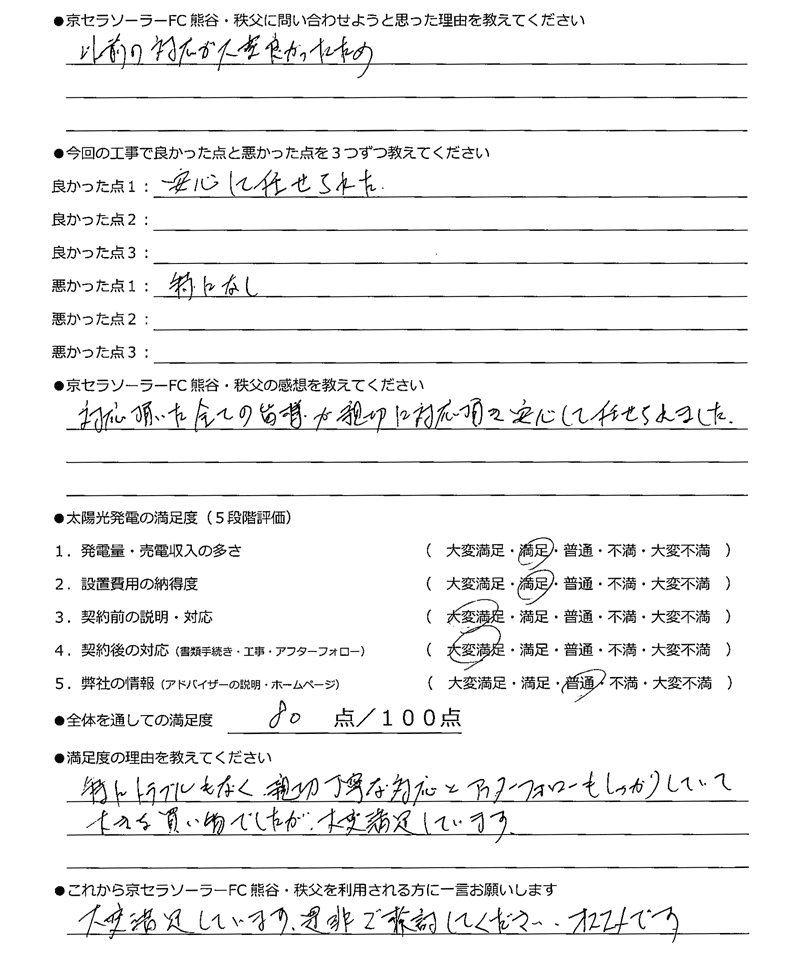 ●京セラソーラーFC熊谷・秩父に問い合わせようと思った理由を教えてください
以前の対応が大変良かったため
●今回の工事で良かった点と悪かった点を３つずつ教えてください
良かった点１： 安心して任せられた.
良かった点２：
良かった点３：
悪かった点１： 特になし
悪かった点２：
悪かった点３：
●京セラソーラーFC熊谷・秩父の感想を教えてください
対応頂いた全ての皆様が親切に対応頂き安心して任せられました.
●太陽光発電の満足度（５段階評価）
１．発電量・売電収入の多さ （ 大変満足・満足・普通・不満・大変不満 ）
２．設置費用の納得度 （ 大変満足・満足・普通・不満・大変不満 ）
３．契約前の説明・対応 （ 大変満足・満足・普通・不満・大変不満 ）
４．契約後の対応（書類手続き・工事・アフターフォロー） （ 大変満足・満足・普通・不満・大変不満 ）
５．弊社の情報（アドバイザーの説明・ホームページ） （ 大変満足・満足・普通・不満・大変不満 ）
●全体を通しての満足度 80 点／１００点
●満足度の理由を教えてください
特にトラブルもなく、親切丁寧な対応とアフターフォローもしっかりしていて
大きな買い物でしたが、大変満足しています.
●これから京セラソーラーFC熊谷・秩父を利用される方に一言お願いします
大変満足しています、是非ご検討してください、オススメです